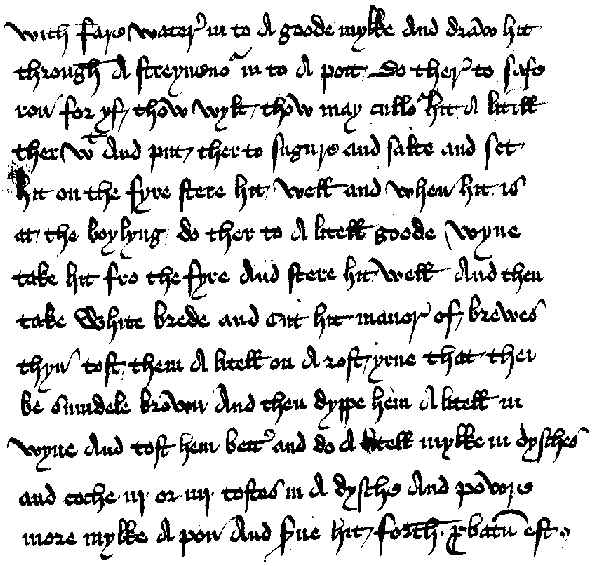 with fayre water in to A goode mylke And draw hit
through A streynour in to A pott Do ther to safe
ron for yf thow wylt thow may cullor hit A litill
ther wt And put ther to sugure and salte and set
hit on the fyre stere hit well and when hit is
at the boylyng do ther to A litell goode Wyne
take hit fro the fyre And stere hit well And then
take White brede and cut hit maner of brewes
thyn tost them A litell on A rost yrne that thei
be sumdele brown And then dyppe hem A litell in
wyne And tost hem bett and do A litell mylke in dysches
and coche iij or iiij tostes in A dysche And powre
more mylke A pon And serve hit forth probatum est